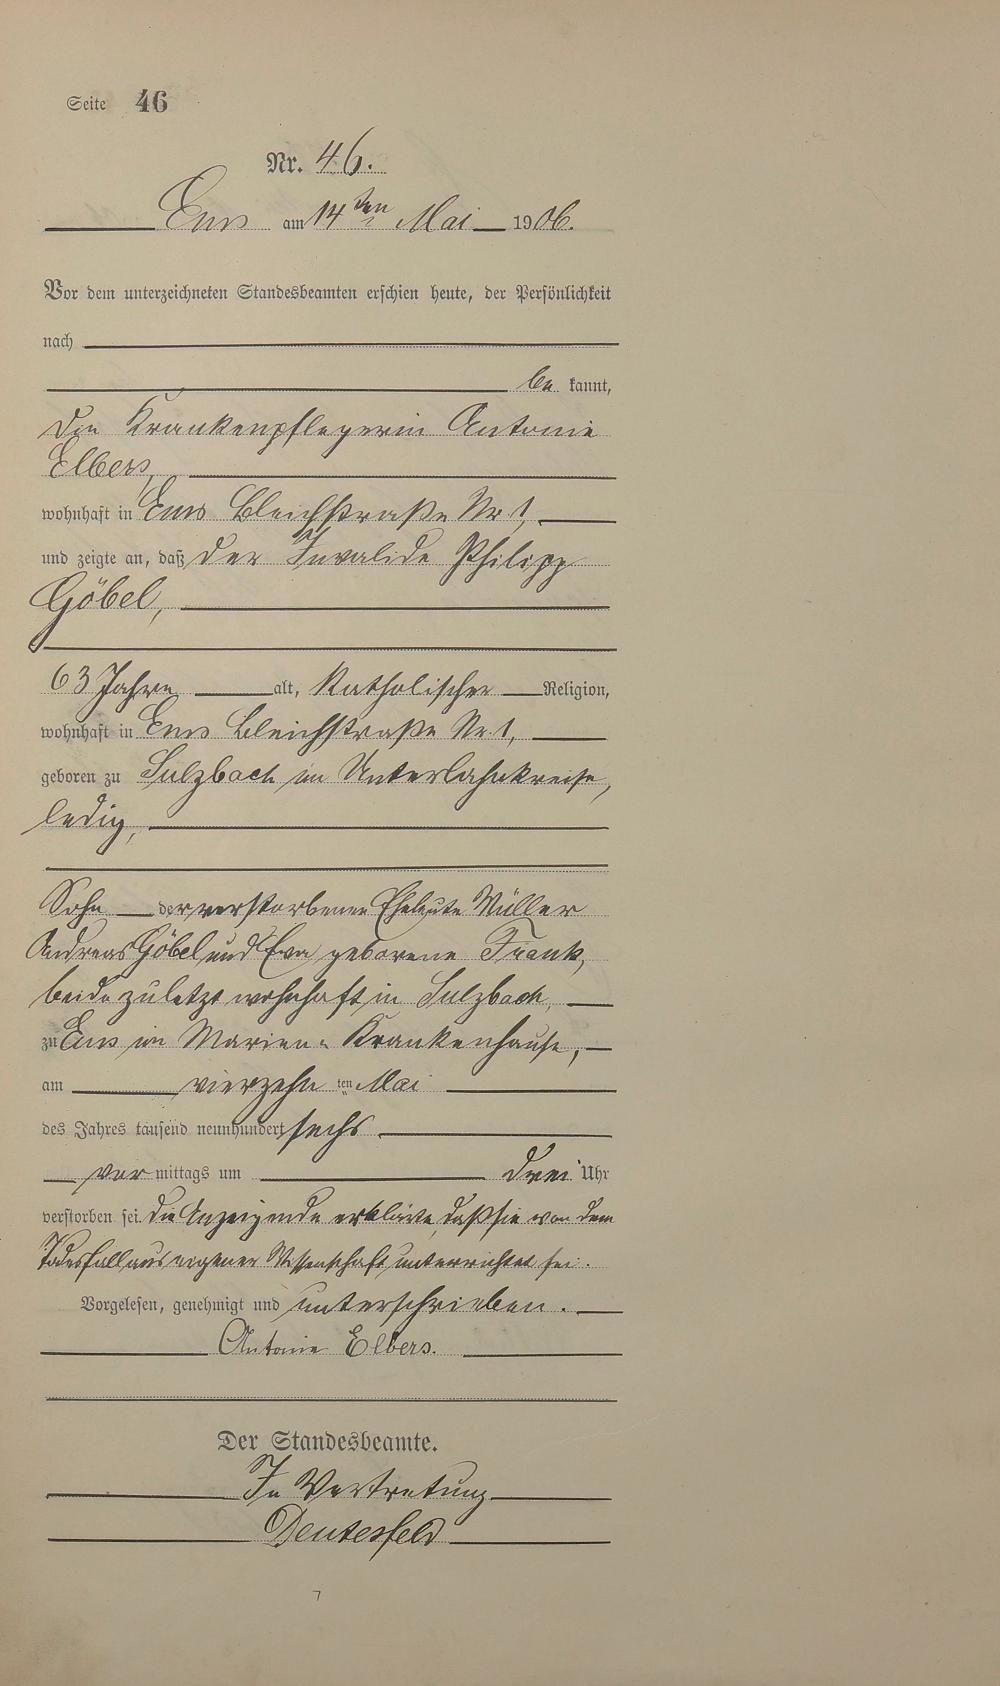 Seite 46
Nr. 46.
Ems am 14ten Mai 1906.
Vor dem unterzeichneten Standesbeamten erschien heute, der Persönlichkeit
nach
be kannt,
die Krankenpflegerin Antonie
Elbers,
wohnhaft in Ems Bleichstraße Nr 1,
und zeigte an, daß der Invalide Philipp
Göbel,
63 Jahre alt, katholischer Religion,
wohnhaft in Ems Bleichstraße Nr. 1,
geboren zu Sulzbach im Unterlahnkreise,
ledig,
Sohn der verstorbenen Eheleute Müller
Andreas Göbel und Eva geborene Frank,
beide zuletzt wohnhaft in Sulzbach,
zu Ems im Marien-Krankenhause,
am vierzehn ten Mai
des Jahres tausend neunhundert sechs
vor mittags um drei Uhr
verstorben sei. Die Anzeigende erklärte, daß sie von dem
Todesfall aus eigener Wissenschaft unterrichtet sei.
Vorgelesen, genehmigt und unterschrieben.
Antonie Elbers.
Der Standesbeamte.
In Vertretung
Deutesfeld